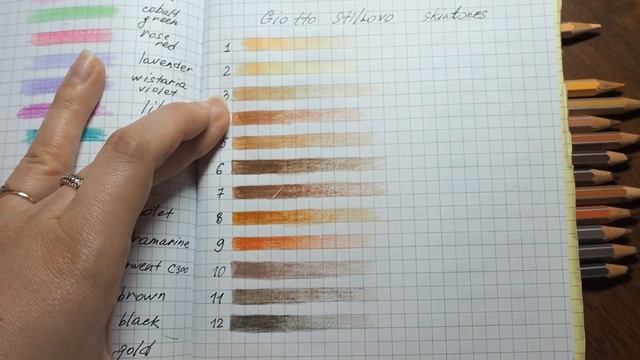 cobalt
green
rose
red
lavender
wistaria
violet
ultramarine
brown
black
gold
Giotto Stilnovo skintones
1
2
3
5
6
7
8
9
10
11
12